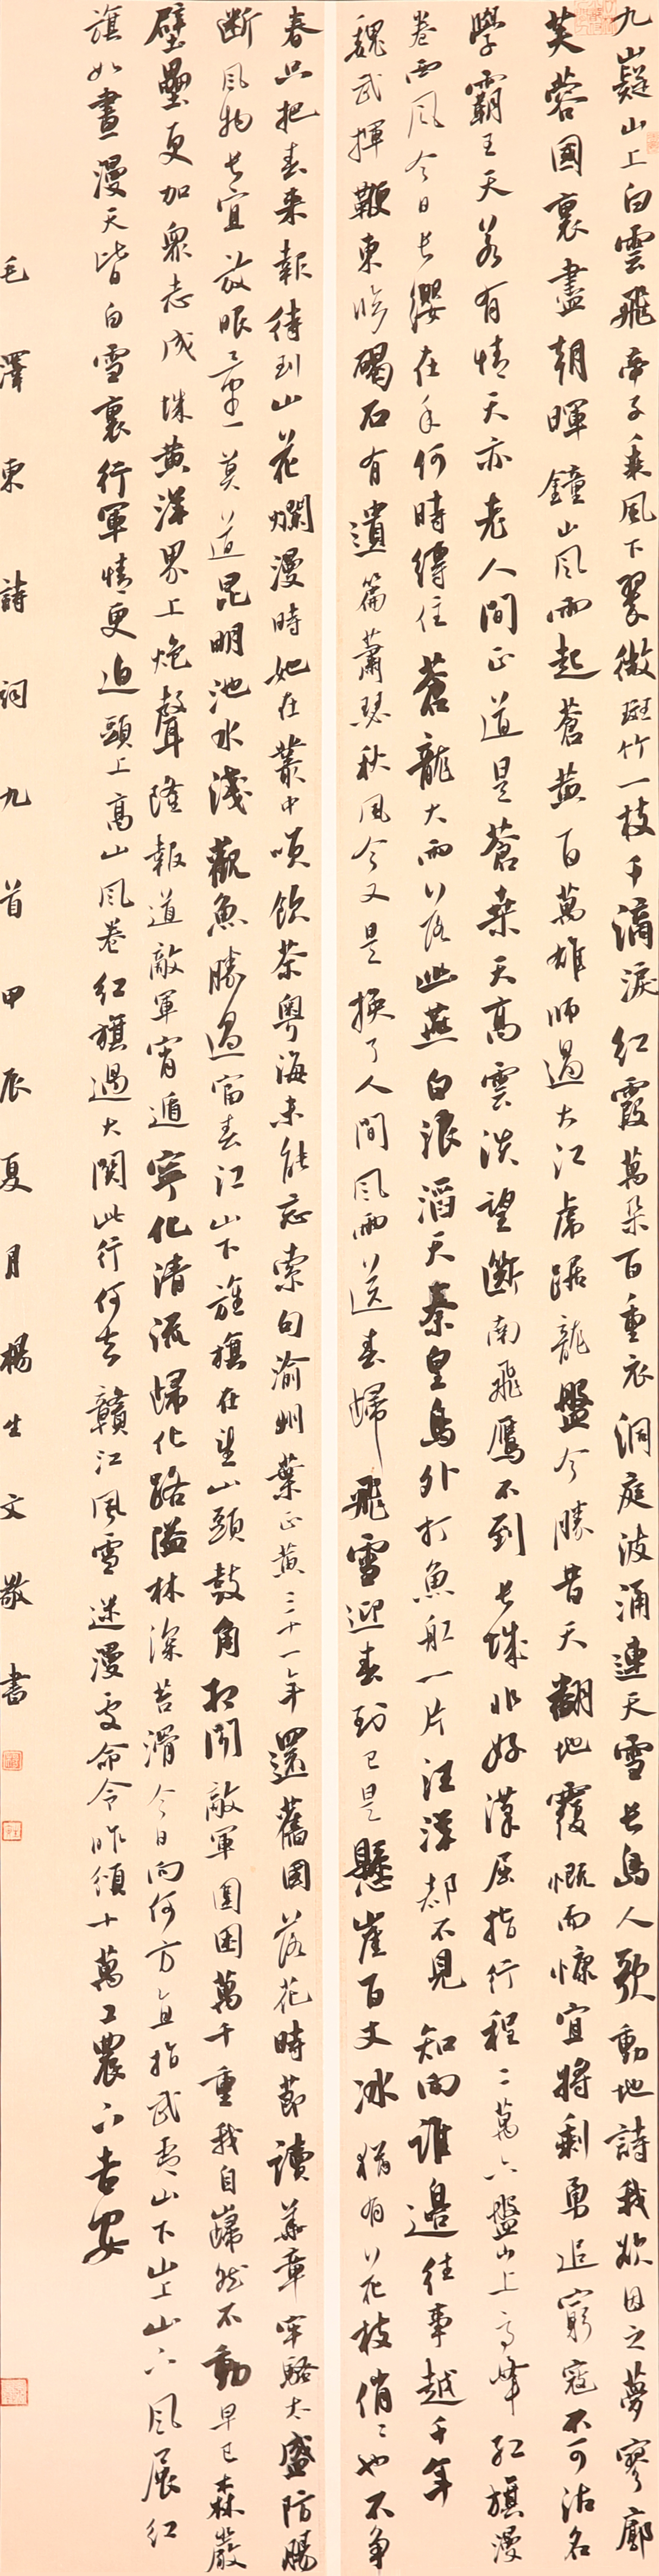 九嶷山上白雲飛帝子乘風下翠微斑竹一枝千滴淚紅霞萬朵百重衣洞庭波涌連天雪長島人歌動地詩我欲因之夢寥廓
芙蓉國裏盡朝暉鐘山風雨起蒼黃百萬雄師過大江虎踞龍盤今勝昔天翻地覆慨而慷宜將剩勇追窮寇不可沽名
學霸王天若有情天亦老人間正道是蒼桑天高雲淡望斷南飛雁不到長城非好漢屈指行程二萬六盤山上高峰紅旗漫
卷西風今日長纓在手何時縛住蒼龍大雨落幽燕白浪滔天秦皇島外打魚船一片汪洋都不見知向誰邊往事越千年
魏武揮鞭東臨碣石有遺篇蕭瑟秋風今又是換了人間風雨送春歸飛雪迎春到已是懸崖百丈冰猶有花枝俏俏也不爭
春只把春來報待到山花爛漫時她在叢中笑飲茶粵海未能忘索句渝州葉正黃三十一年還舊國落花時節讀華章牢騷太盛防腸
斷風物長宜放眼量莫道昆明池水淺觀魚勝過富春江山下旌旗在望山頭鼓角相聞敵軍圍困萬千重我自巋然不動早已森嚴
壁壘更加衆志成城黃洋界上炮聲隆報道敵軍宵遁寧化清流歸化路隘林深苔滑今日向何方直指武夷山下山上山下風展紅
旗如畫漫天皆白雪裏行軍情更迫頭上高山風卷紅旗過大關此行何去贛江風雪迷漫處命令昨頒十萬工農下吉安
毛澤東詩詞九首甲辰夏月楊生文敬書